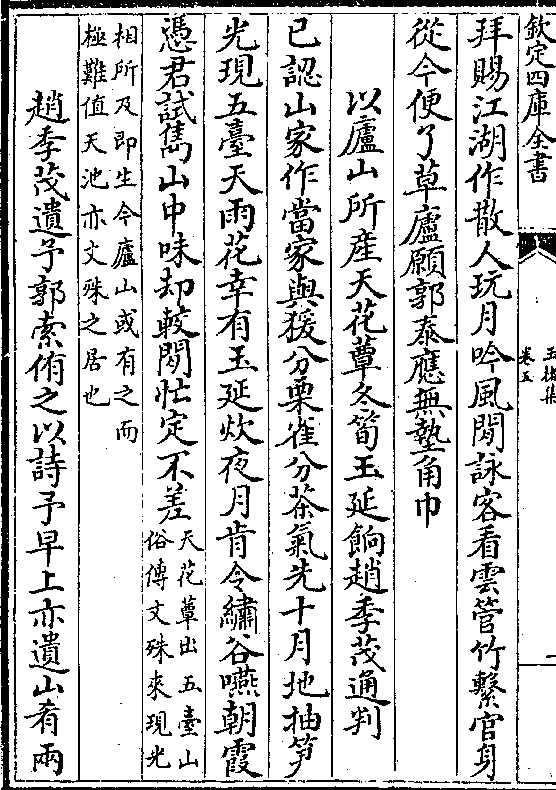 欽定四庫全書
玉楮集
卷五
一
拜賜江湖作散人玩月吟風閒詠客看雲管竹繫官身
從今便了草廬願郭泰應無墊角巾
以廬山所産天花蕈冬筍玉延餉趙季茂通判
已認山家作當家與猨分栗雀分茶氣先十月地抽笋
光現五臺天雨花幸有玉延炊夜月肯令繡谷嚥朝霞
憑君試雋山中味却較閒忙定不差天花蕈出五臺山
俗傳文殊來現光
相所及即生今廬山或有之而
極難值天池亦文殊之居也
趙季茂遺予郭索侑之以詩予早上亦遺山肴兩